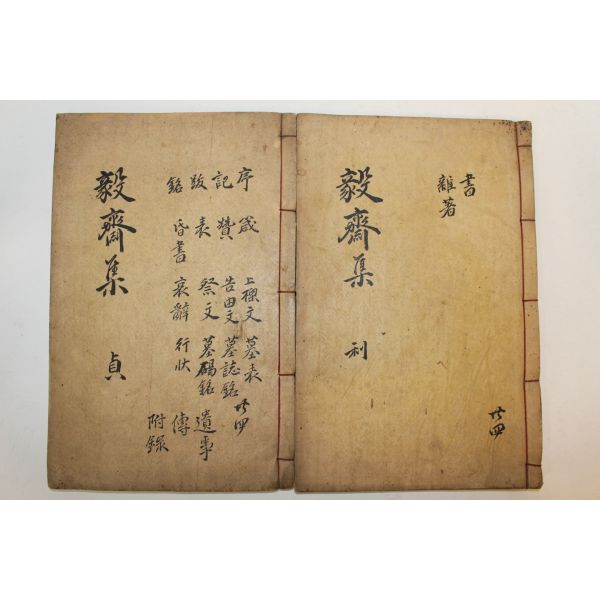 書
雜著
毅齋集 利
共四
序 箴 上樑文 墓表
記 贊 告由文 墓誌銘
跋 表 祭文 墓碣銘 遺事
銘 昏書 哀辭 行狀 傳
附錄
共四
毅齋集 貞